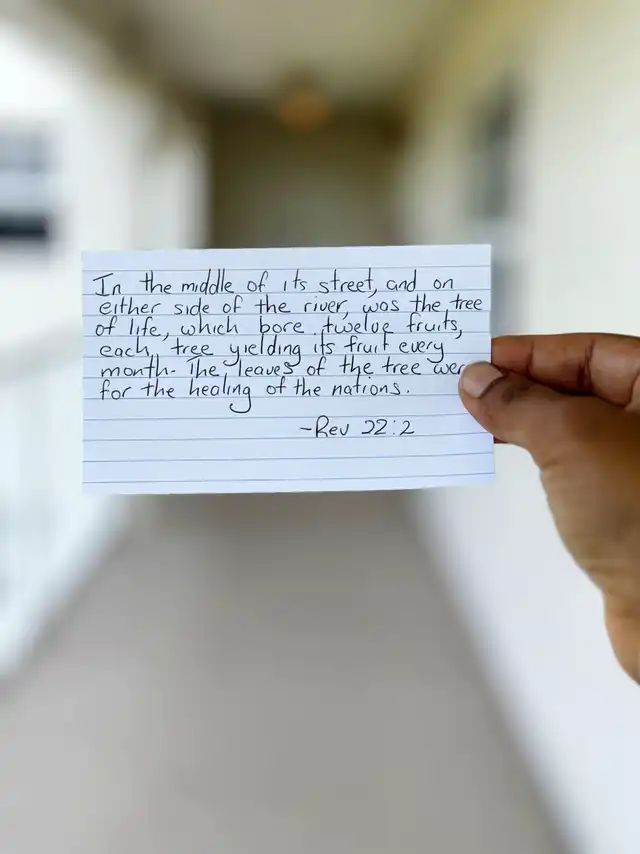 In the middle of its street, and on
either side of the river, was the tree
of life, which bore twelve fruits,
each tree yielding its fruit every
month. The leaves of the tree wer
for the healing of the nations.
-Rev 22:2